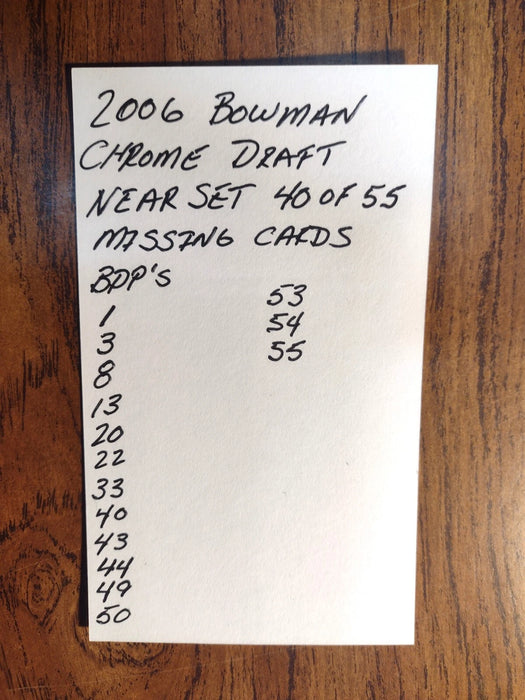 2006 BOWMAN
CHROME DRAFT
NEAR SET 40 OF 55
MISSING CARDS
BDP'S
1
3
8
13
20
22
33
40
43
44
49
50
53
54
55